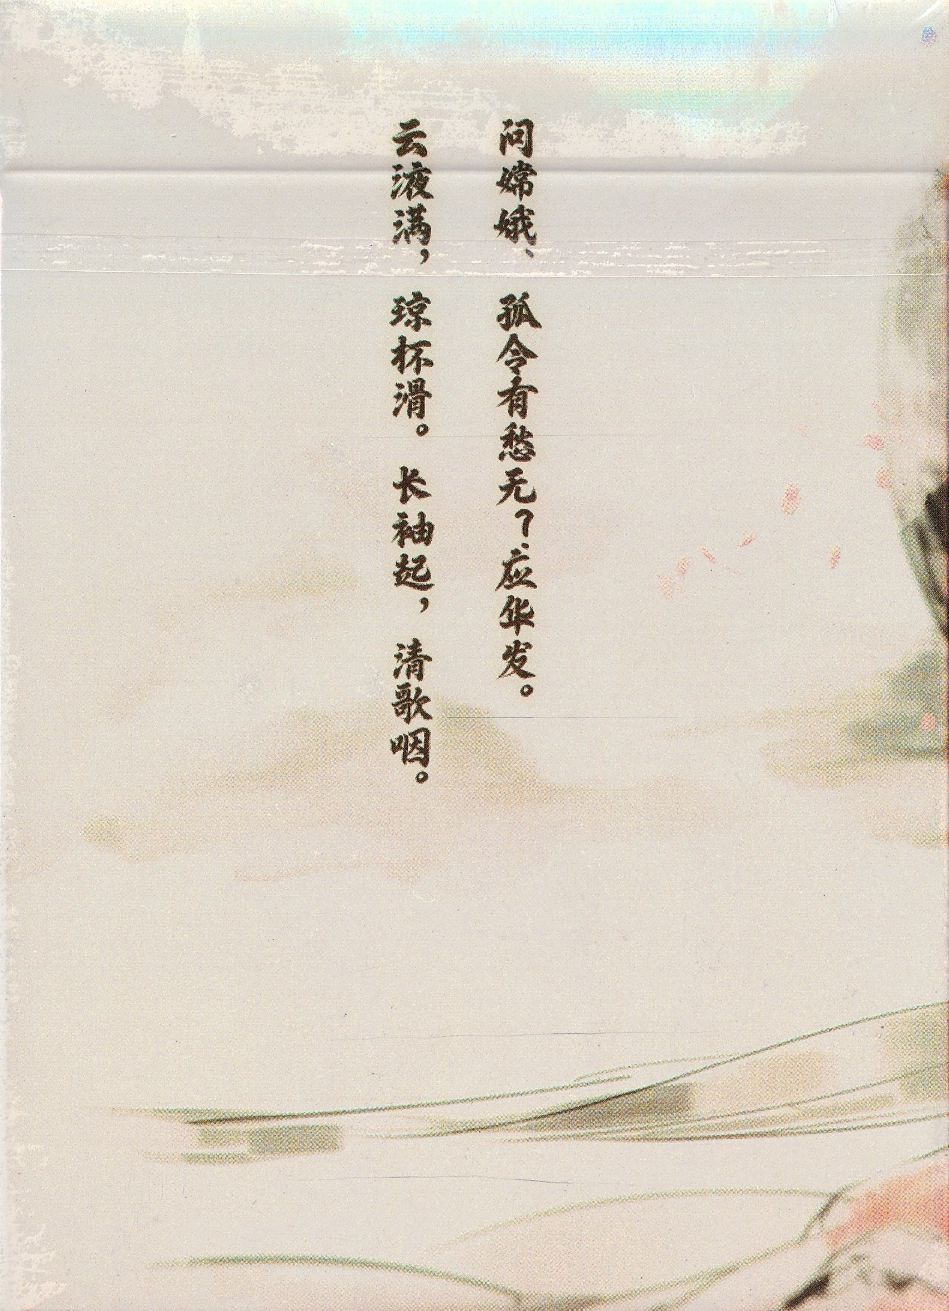 问嫦娥、孤令有愁无？应华发。
云液满，琼杯滑。长袖起，清歌咽。